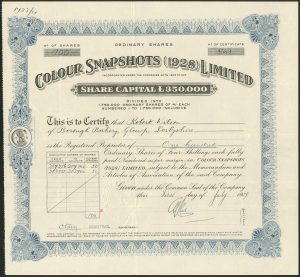 No OF SHARES
ORDINARY SHARES
No OF CERTIFICATE
COLOUR SNAPSHOTS (1928) LIMITED
INCORPORATED UNDER THE COMPANIES ACTS 1908 TO 1917
SHARE CAPITAL £350,000
DIVIDED INTO
1,750,000 ORDINARY SHARES OF 4/- EACH
NUMBERED 1 TO 1,750,000 INCLUSIVE
This is to Certify that Robert
of Bakery, Glossop, Derbyshire
is the Registered Proprietor of One hundred
Ordinary Shares of Four Shillings each fully
paid Numbered as per margin in COLOUR SNAPSHOTS
(1928) LIMITED, subject to the Memorandum and
Articles of Association of the said Company.
GIVEN under the Common Seal of the Company
this day of July